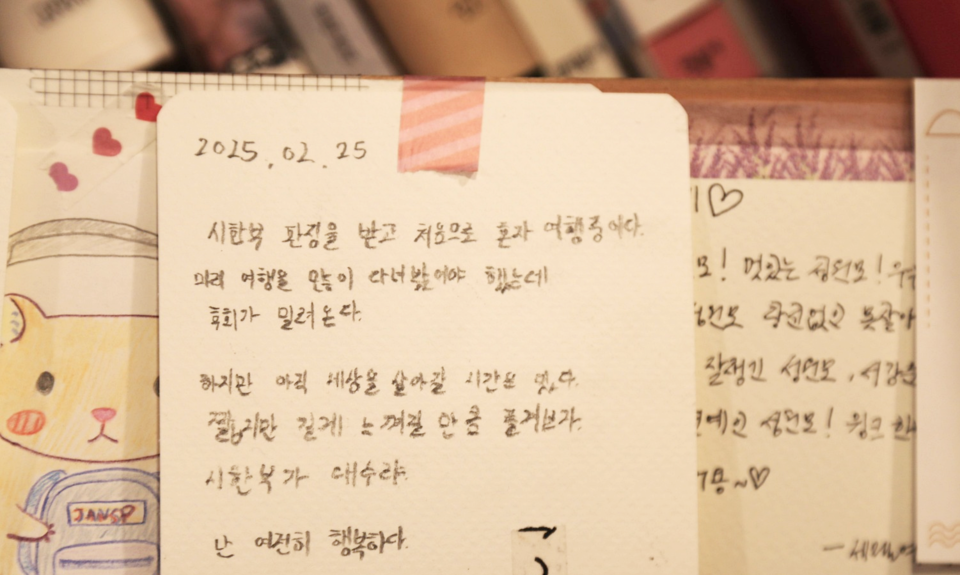 2025.02.25
시한부 판정을 받고 처음으로 혼자 여행중이다.
미리 여행을 많이 다녀봤어야 했는데
후회가 밀려온다.
하지만 아직 세상을 살아갈 시간은 있다.
짧지만 길게 느껴질 만큼 즐겨보자.
시한부가 대수랴.
난 여전히 행복하다.
JANSP
모! 멋있는 성연모!
성연모
잘생긴 성연모,
성연모! 윙크